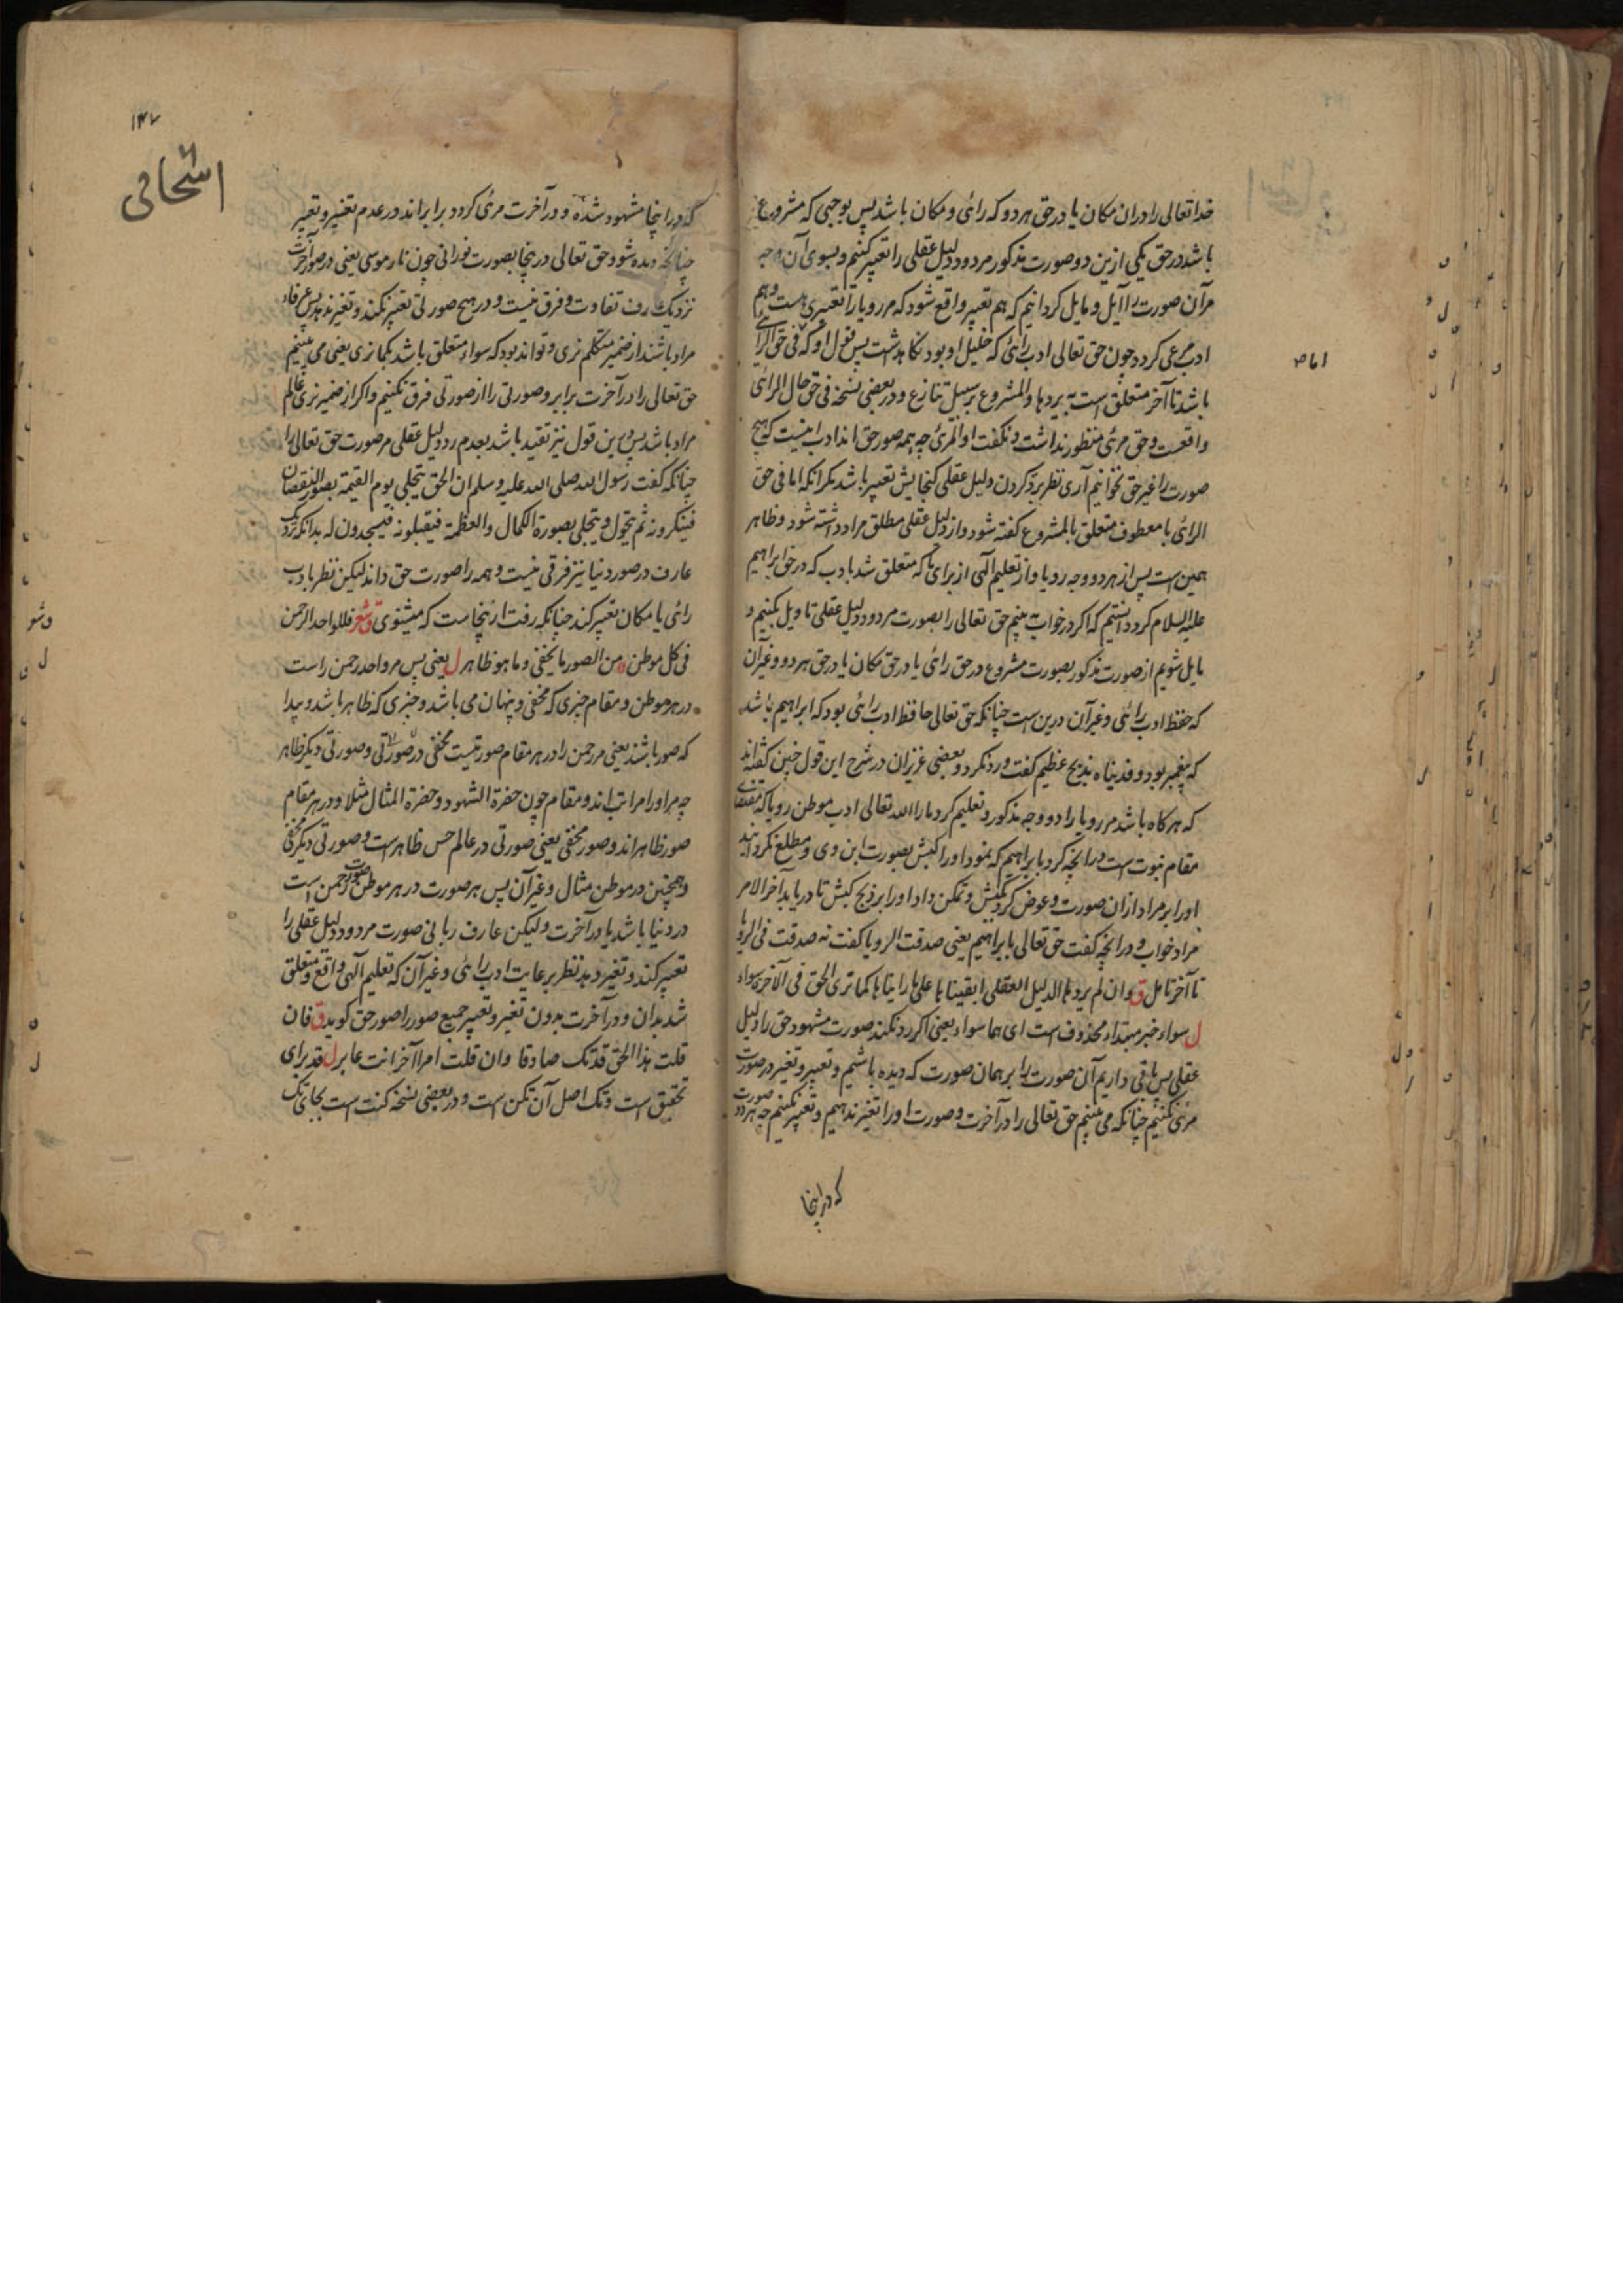 خدا تعالی را در ان مکان یا در حق هر دو که رائی و مکان باشد پس بوجبی که مشروع
باشد در حق یکی ازین دو صورت مذکور مردود دلیل عقلی را تعبیر کنیم و بسوی آن وجه
مر آن صورت را آیل و مایل کردانیم که هم تعبیر واقع شود که مر رویا را تعبیری هست و هم
ادب مرعی کردد چون حق تعالی ادب رائی که خلیل او بود نکاهداشت پس بقول او که فی حق الرائی
باشد تا آخر متعلق است به یردها و المشروع بر سبیل تنازع و در بعضی نسخه فی حق حال الرائی
واقعست و حق مرئی منظور نداشت و نکفت او المرئی چه همه صور حق اند ادب اینست که هیچ
صورت را غیر حق نخوانیم آری نظر برد کردن دلیل عقلی کنجایش تعبیر باشد مکر انکه اما فی حق
اما ص
الرائی با معطوف متعلق بالمشروع کفته شود و از دلیل عقلی مطلق مراد داشته شود و ظاهر
همین است پس از هر دو وجه رویا و از تعلیم الٰهی از برای ما که متعلق شد بادب که در حق ابراهیم
علیه السلام کرد دانستیم که اکر در خواب بینیم حق تعالی را بصورت مردود دلیل عقلی تاویل بکنیم و
مایل شویم از صورت مذکور بصورت مشروع در حق رائی یا در حق مکان یا در حق هر دو و غیر آن
که حفظ ادب رائی و غیر آن درین است چنانکه حق تعالی حافظ ادب رائی بود که ابراهیم باشد
که پیغمبر بود و فدیناه بذبح عظیم کفت و رد نکرد و بعضی عزیزان در شرح این قول چنین کفته اند
که هرکاه باشد مر رویا را دو وجه مذکور و تعلیم کرد ما را الله تعالی ادب موطن رویا که مقتضای
مقام نبوت است در انچه کرد با ابراهیم که نمود او را کبش بصورت ابن وی و مطلع نکردانید
او را بر مراد از ان صورت و عوض کرد کبش و تمکن داد او را بر ذبح کبش تا دریابد آخر الامر
مراد خواب و در انچه کفت حق تعالی با ابراهیم یعنی صدقت الرویا کفت نه صدقت فی الرویا
تا آخر تامل ق وان لم یردها الدلیل العقلی ابقیناها علی ما رایناها کما تری الحق فی الآخرة سواء
ل سواء خبر مبتداء محذوف است ای هما سواء یعنی اکر رد نکند صورت مشهود حق را دلیل
عقلی پس باقی داریم آن صورت را بر همان صورت که دیده باشیم و تعبیر و تغیر در صورت
مرئی نکنیم چنانکه می بینیم حق تعالی را در آخرت و صورت او را تغیر ندهیم و تعبیر نکنیم چه هر دو صورت
که در اینجا
۱۴۷
اسحاقی
که در اینجا مشهود شده و در آخرت مرئی کردد برابر اند در عدم تغییر و تعبیر
چنانکه دیده شود حق تعالی در ینجا بصورت نورانی چون نار موسی یعنی در صور آخرت
نزدیک عارف تفاوت و فرق نیست و در هیچ صورتی تعبیر نکند و تغیر ندهد پس عرفاء
مراد باشند از ضمیر متکلم نری و تواند بود که سواء متعلق باشد بکما نری یعنی می بینیم
حق تعالی را در آخرت برابر و صورتی را از صورتی فرق نکنیم و اکر از ضمیر نری عالم
مراد باشد پس برین قول نیز تقید باشد بعدم رد دلیل عقلی مر صورت حق تعالی را
چنانکه کفت رسول الله صلی الله علیه وسلم ان الحق یتجلی یوم القیمة بصور النقصان
فینکرونه ثم یتحول و یتجلی بصورة الکمال والعظمة فیقبلونه فیسجدون له بدانکه نزدیک
عارف در صور دنیا نیز فرقی نیست و همه را صورت حق داند لیکن نظر بادب
رائی یا مکان تعبیر کند چنانکه رفت از ینجاست که میثنوی ق شعر فللواحد الرحمن
فی کل موطن من الصور ما یخفی وما هو ظاهر ل یعنی پس مر واحد رحمن راست
در هر موطن و مقام چیزی که مخفی و پنهان می باشد و چیزی که ظاهر باشد و پیدا
که صور باشند یعنی مر رحمن را در هر مقام صورتیست مخفی در صورتی و صورتی دیکر ظاهر
چه مر او را مراتب اند و مقام چون حضرة الشهود و حضرة المثال مثلا و در هر مقام
صور ظاهر اند و صور مخفی یعنی صورتی در عالم حس ظاهر است و صورتی دیکر مخفی
و همچنین در موطن مثال و غیر آن پس هر صورت در هر موطن صورت رحمن است
در دنیا باشد یا در آخرت ولیکن عارف ربانی صورت مردود دلیل عقلی را
تعبیر کند و تغیر دهد نظر برعایت ادب رائی و غیر آن که تعلیم الٰهی واقع و متعلق
شد بدان و در آخرت بدون تغیر و تعبیر جمیع صور را صور حق کوید ق فان
قلت هذا الحق قد تک صادقا وان قلت امرا آخرا انت عابر ل قد برای
تحقیق است و تک اصل آن تکن است و در بعضی نسخه کنت است بجای تک